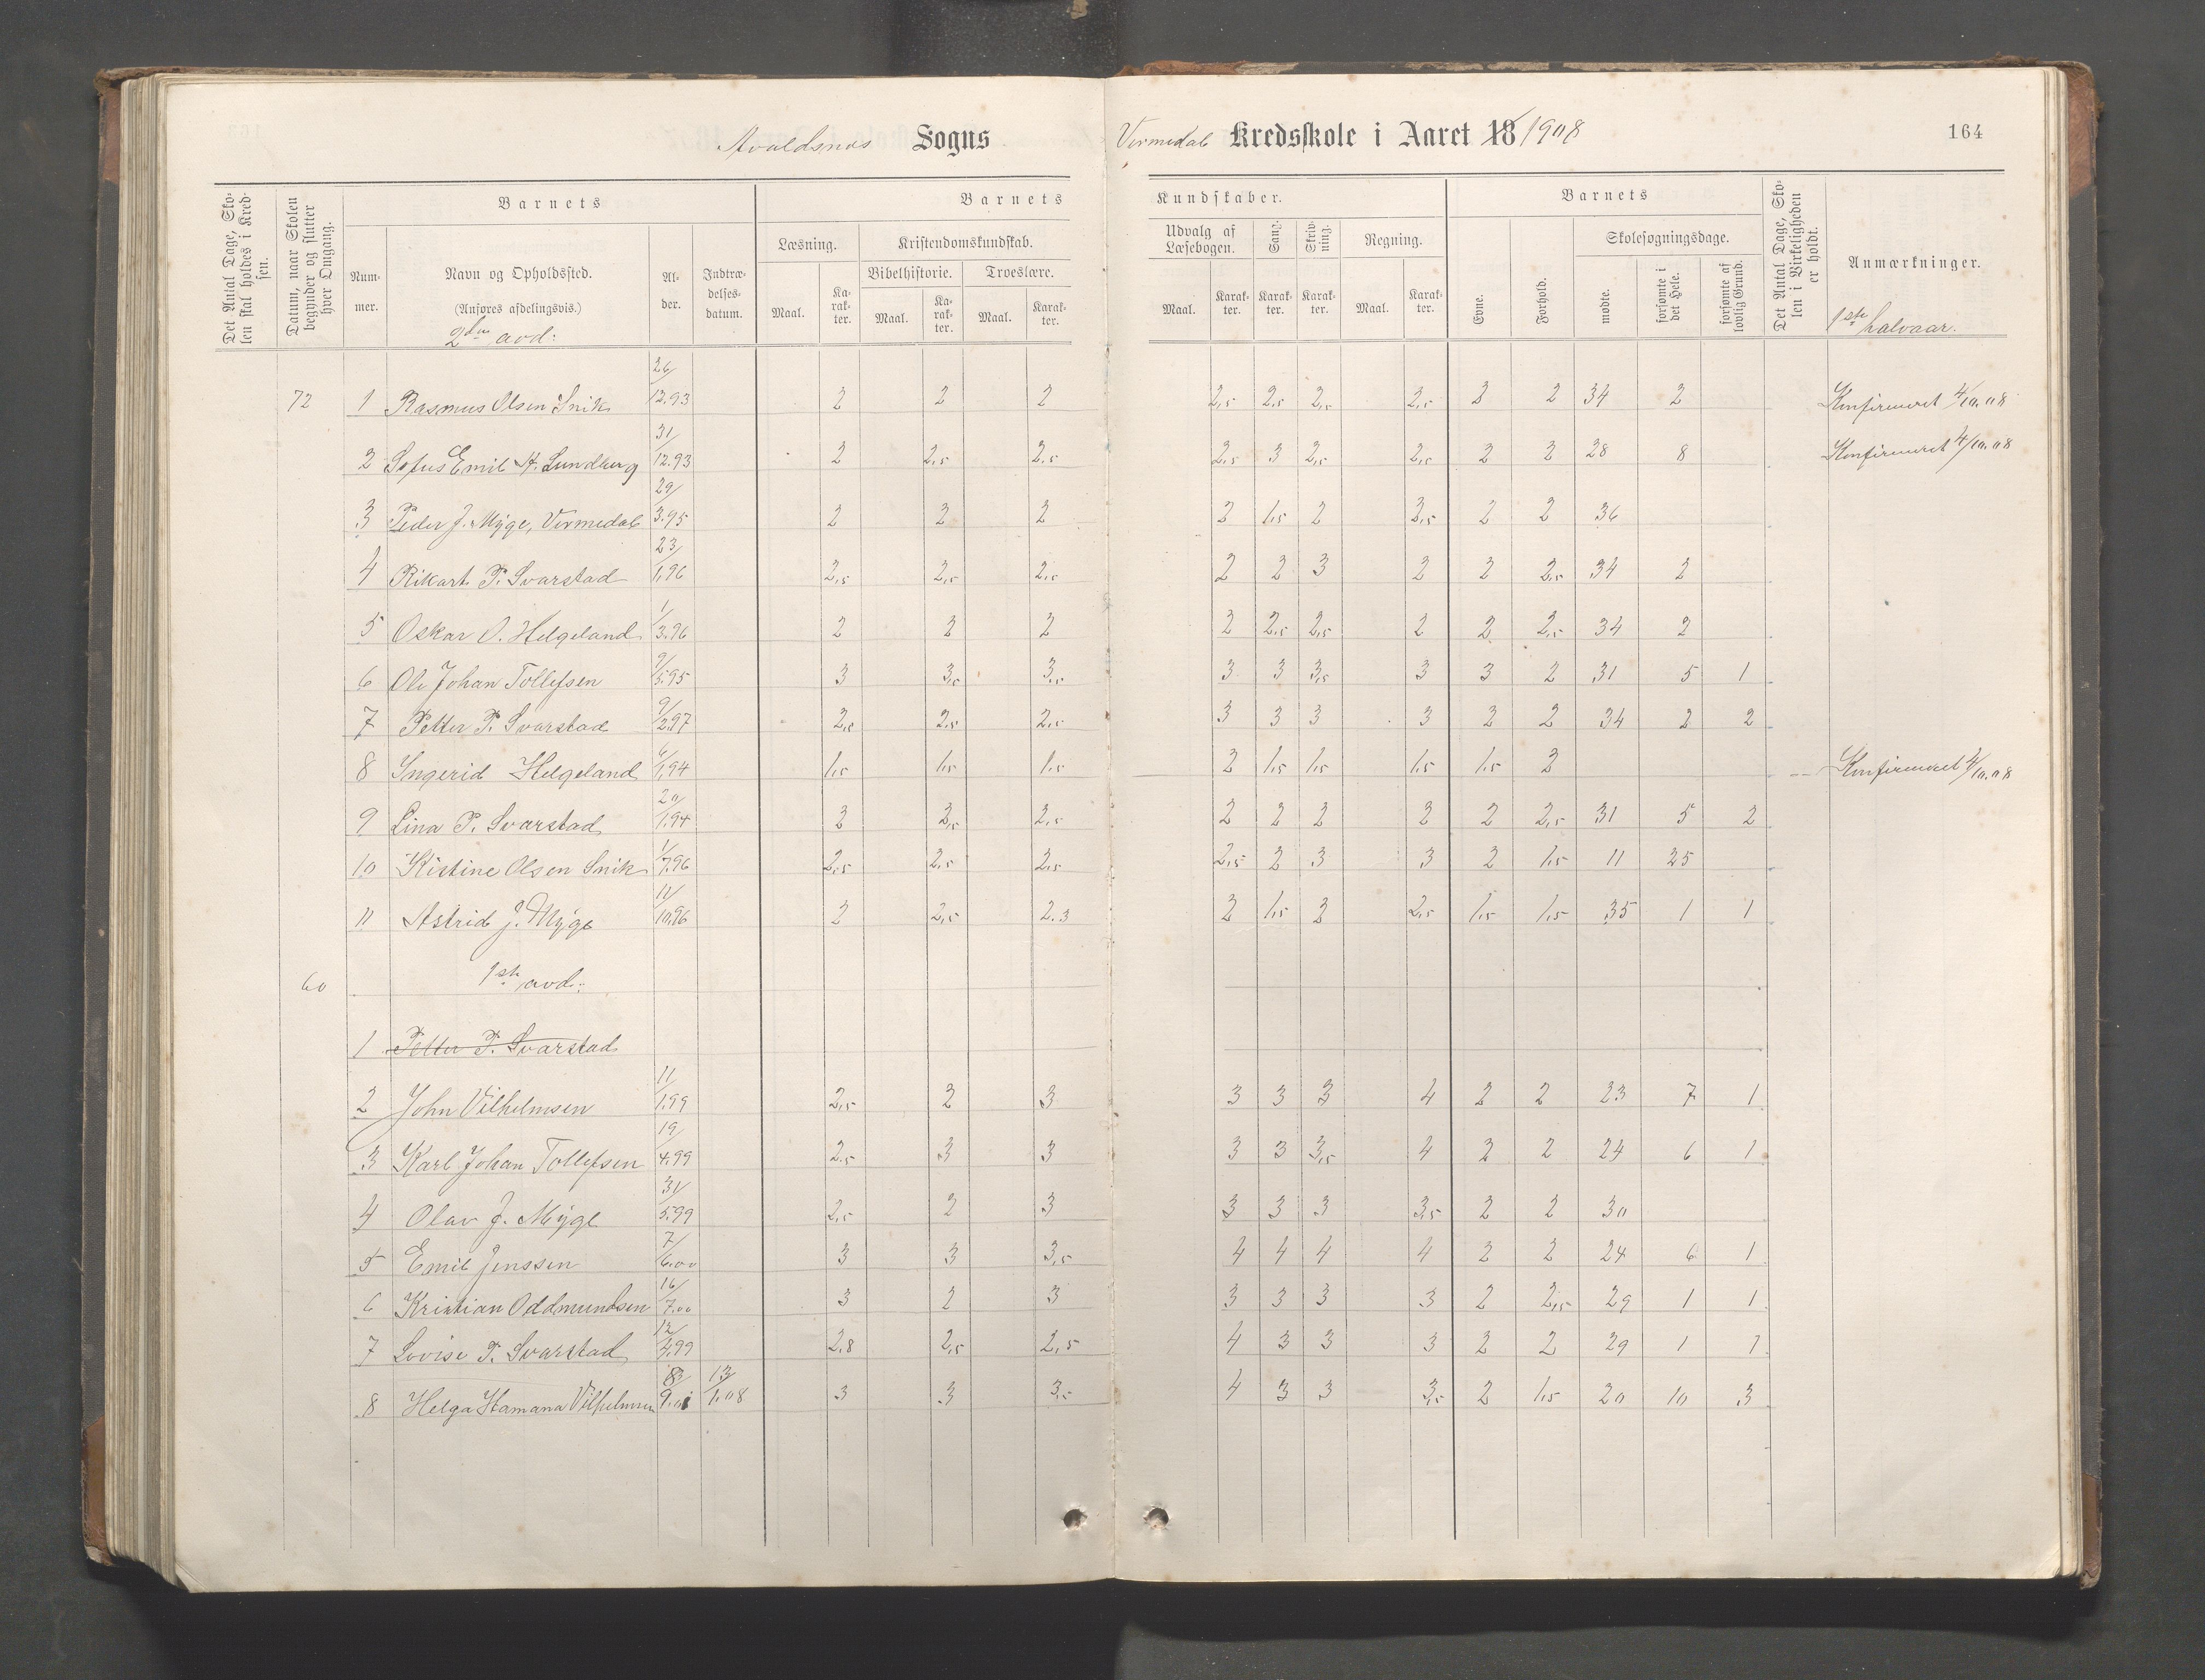 Avaldsnes Sogns
Vermedal Kredsskole i Aaret 18 1908
164
Det Antal Dage, Skolen skal holdes i Kredsen.
Datum, naar Skolen begynder og slutter hver Omgang.
Barnets
Nummer.
Navn og Opholdssted.
(Anføres afdelingsvis.)
2den avd:
Alder.
Indtrædelsesdatum.
Barnets
Læsning.
Maal.
Karakter.
Kristendomskundskab.
Bibelhistorie.
Maal.
Karakter.
Troeslære.
Maal.
Karakter.
Kundskaber.
Udvalg af Læsebogen.
Maal.
Karakter.
Sang.
Karakter.
Skrivning.
Karakter.
Regning.
Maal.
Karakter.
Barnets
Evne.
Forhold.
Skolesøgningsdage.
mødte.
forsømte i det Hele.
forsømte af lovlig Grund.
Det Antal Dage, Skolen i Virkeligheden er holdt.
Anmærkninger.
1ste halvaar.
72 1 Rasmus Olsen Snik 26/12.93 2 2 2 2,5 2,5 2,5 2,5 2 2 34 2 Konfirmeret 4/10.08
2 Sofus Emil H. Lundberg 31/12.93 2 2,5 2,5 2,5 3 2,5 2,5 2 2 28 8 Konfirmeret 4/10.08
3 Peder J. Myge, Vermedal 29/3.95 2 2 2 2 1,5 2 2,5 2 2 36
4 Rikart P. Svarstad 23/1.96 2,5 2,5 2,5 2 2 3 2 2 2,5 34 2
5 Oskar O. Helgeland 1/3.96 2 2 2 2 2,5 2,5 2 2 2,5 34 2
6 Ole Johan Tollefsen 9/5.95 3 3,5 3,5 3 3 3,5 3 3 2 31 5 1
7 Petter P. Svarstad 9/2.97 2,5 2,5 2,5 3 3 3 3 2 2 34 2 2
8 Ingerid Helgeland 6/1.94 1,5 1,5 1,5 2 1,5 1,5 1,5 1,5 2 Konfirmeret 4/10.08
9 Lina P. Svarstad 20/1.94 2 2,5 2,5 2 2 2 2 2 2,5 31 5 2
10 Kistine Olsen Snik 1/7.96 2,5 2,5 2,5 2,5 2 3 3 2 1,5 11 25
11 Astrid J. Myge 11/10.96 2 2,5 2.3 2 1,5 2 2,5 1,5 1,5 35 1 1
60 1ste avd:
1 Petter P. Svarstad
2 John Vilhelmsen 11/1.99 2,5 2 3 3 3 3 4 2 2 23 7 1
3 Karl Johan Tollefsen 19/4.99 2,5 3 3 3 3 3,5 4 2 2 24 6 1
4 Olav J. Myge 31/5.99 2,5 2 3 3 3 3 3,5 2 2 30
5 Emil Jenssen 7/6.00 3 3 3,5 4 4 4 4 2 2 24 6 1
6 Kristian Oddmundsen 16/7.00 3 2 3 3 3 3 3 2 2,5 29 1 1
7 Lovise P. Svarstad 12/4.99 2,8 2,5 2,5 4 3 3 3 2 2 29 1 1
8 Helga Hamana Vilhelmsen 8/9.01 13/1.08 3 3 3,5 4 3 3 3,5 2 1,5 20 10 3